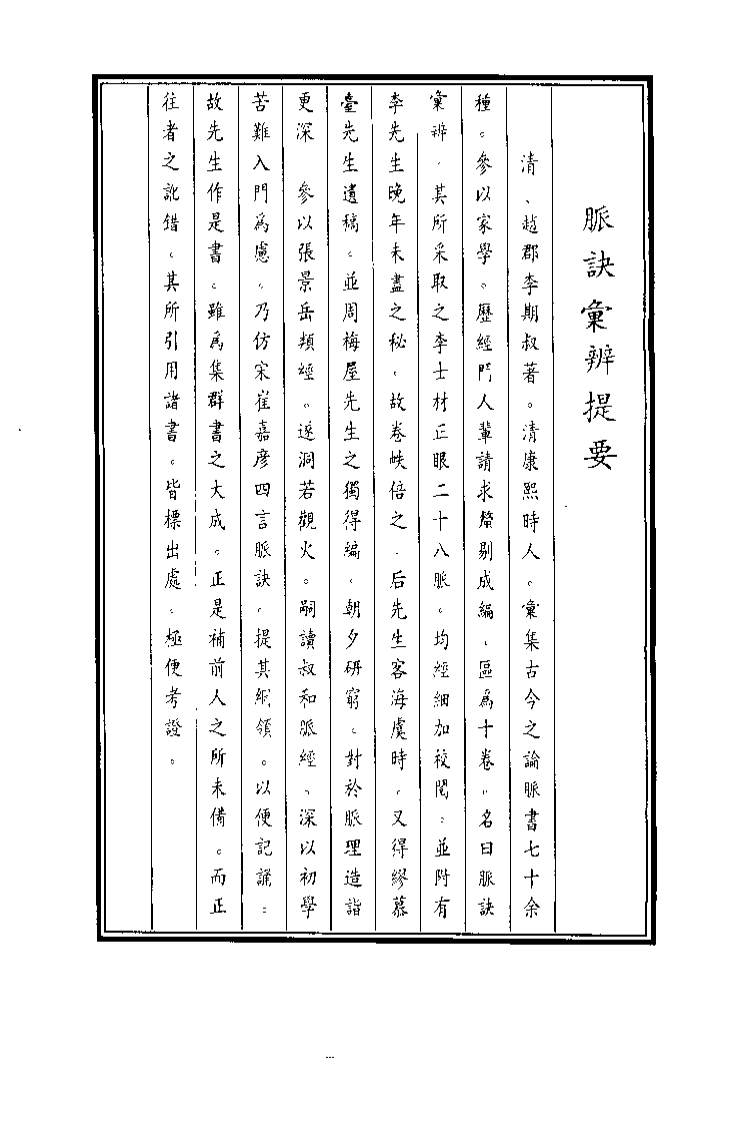 脈訣彙辨提要
清、趙郡李期叔著。清康熙時人。彙集古今之論脈書七十余
種。參以家學。歷經門人輩請求釐剔成編、區爲十卷。名曰脈訣
彙辨．其所采取之李士材正眼二十八脈。均經細加校閱。並附有
李先生晚年未盡之秘．故卷帙倍之．后先生客海虞時．又得繆慕
臺先生遺稿。並周梅屋先生之獨得編．朝夕研窮。對於脈理造詣
更深 參以張景岳類經。遂洞若觀火。嗣讀叔和脈經、深以初學
苦難入門爲慮．乃仿宋崔嘉彦四言脈訣．提其綱領。以便記誦：
故先生作是書．雖爲集群書之大成。正是補前人之所未備。而正
往者之訛錯。其所引用諸書。皆標出處．極便考證。